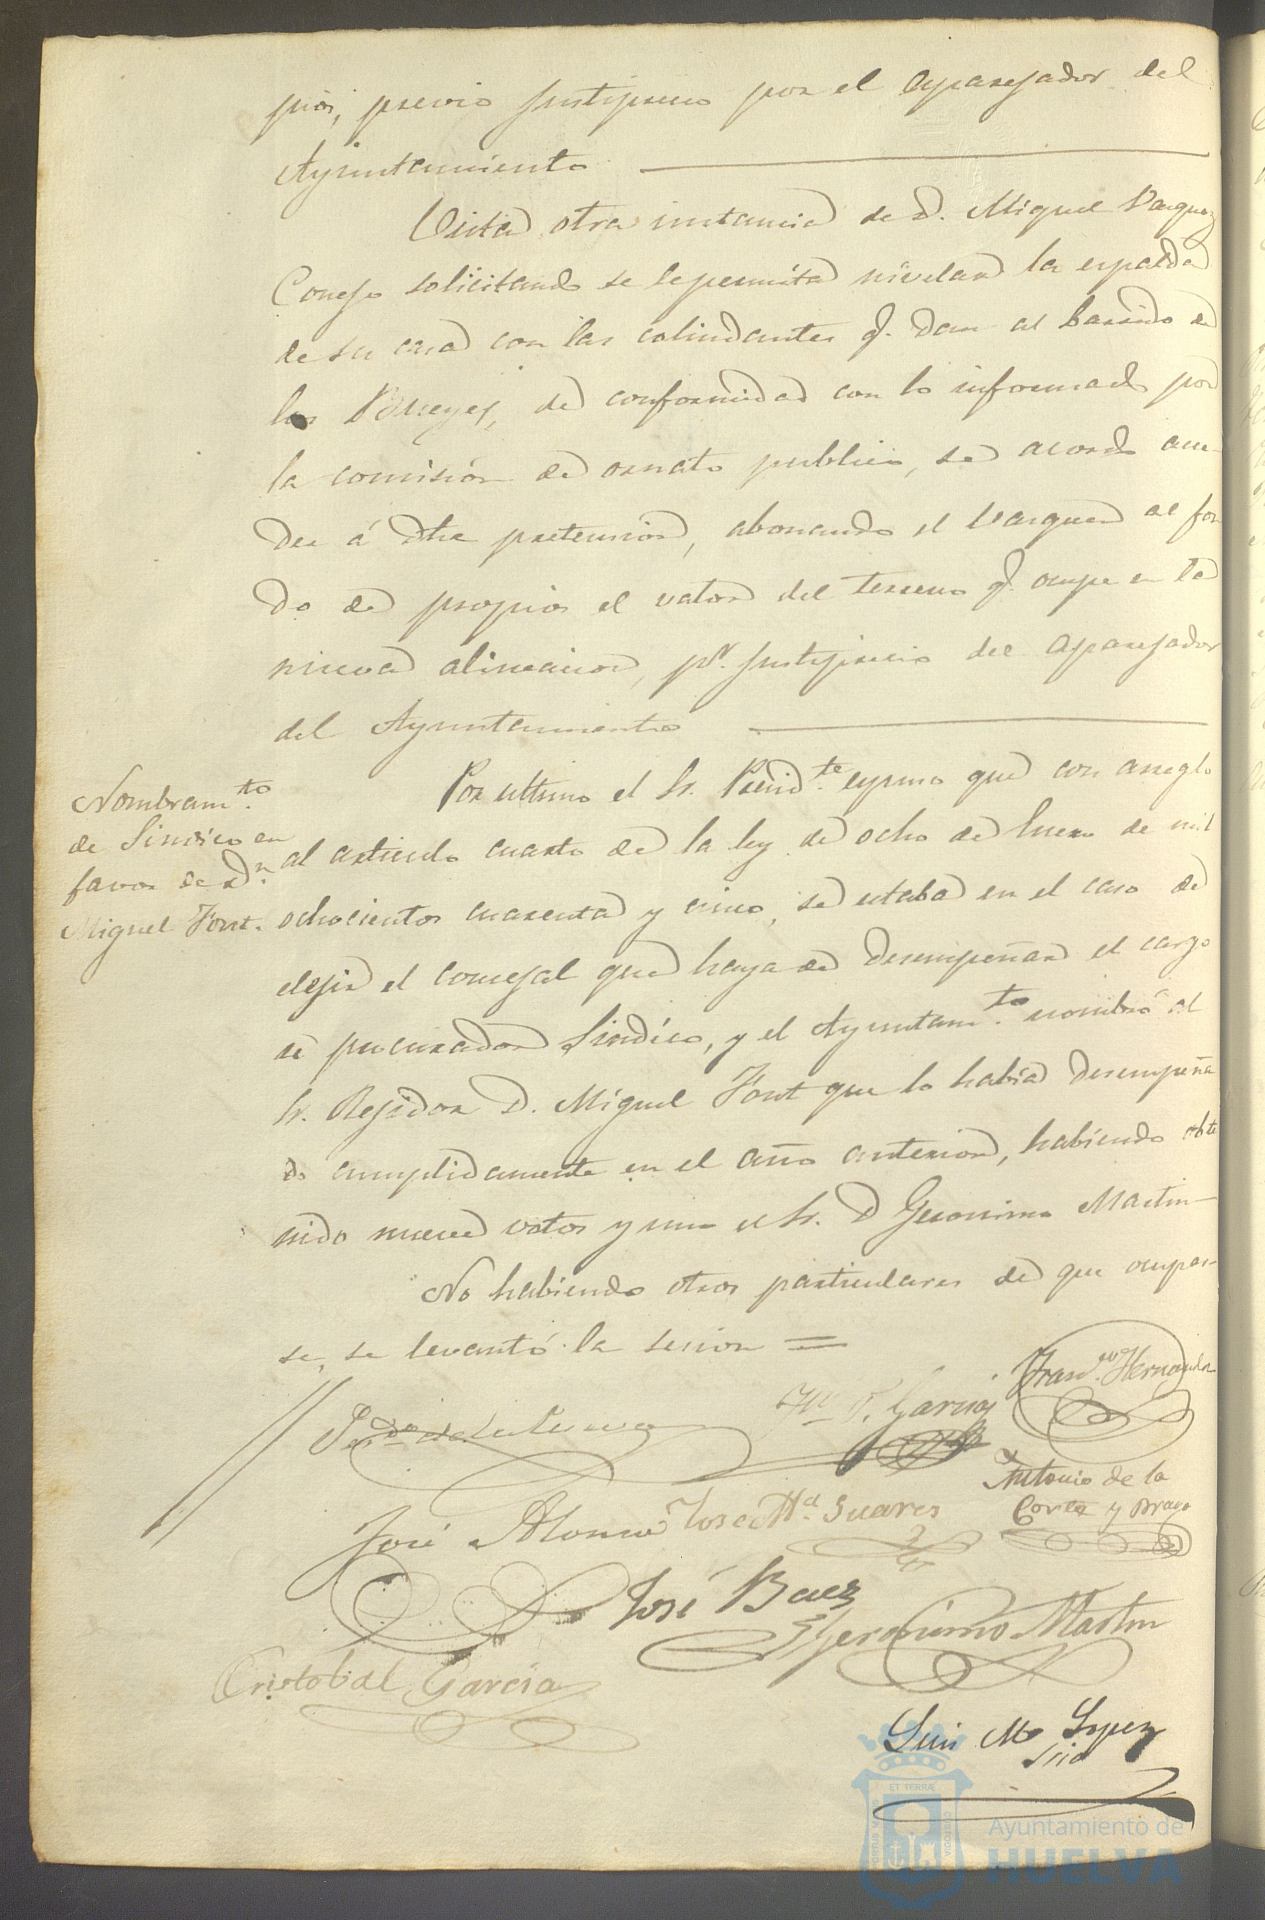 pios, previo justiprecio por el aparejador del
Ayuntamiento
Vista otra instancia de D. Miguel Vazquez
Conejo solicitando se le permita nivelar la espalda
de su casa con las colindantes q. dan al barrido de
los Bueyes, de conformidad con lo informado por
la comision de ornato publico, se acordó acce-
der á dha pretension, abonando el Vazquez al fon
do de propios el valor del terreno q. ocupe en la
nueva alineacion, pr. justiprecio del aparejador
del Ayuntamiento
Nombramto.
de Sindico en
favor de Dn.
Miguel Font.
Por ultimo el Sr. Presidte. expuso que con arreglo
al articulo cuarto de la ley de ocho de Enero de mil
ochocientos cuarenta y cinco, se estaba en el caso de
elejir el concejal que haya de desempeñar el cargo
de procurador Sindico, y el Ayuntamto. nombró al
Sr. Rejidor D. Miguel Font que lo habia desempeña
do cumplidamente en el año anterior, habiendo obte
nido nueve votos y uno el Sr. D Geronimo Martin
No habiendo otros particulares de que ocupar-
se, se levantó la sesion =
Franco. Hernandez
Garcia
Antonio de la
Corte y Bravo
José Alonso
Jose Ma. Suares
José Baez
Geronimo Martin
Cristobal Garcia
Luis Ma Lopez
Srio
ET TERRÆ
Ayuntamiento de
HUELVA